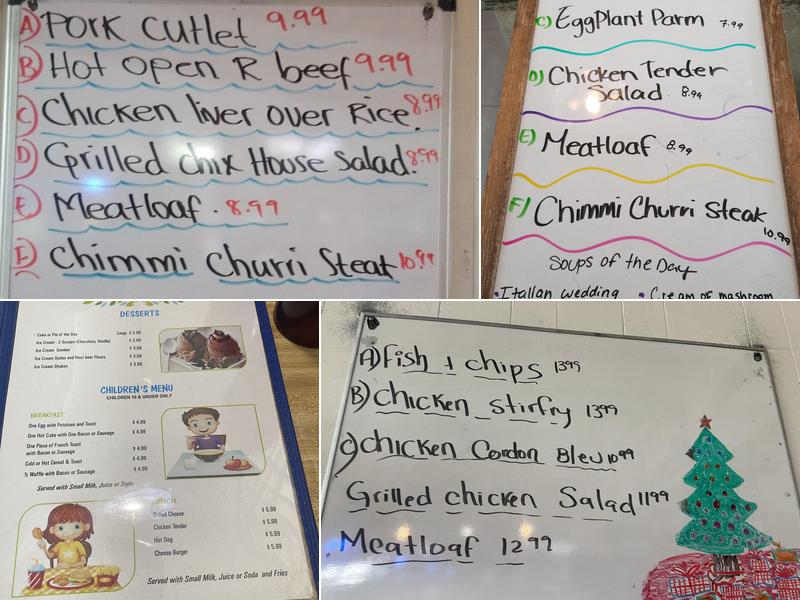 A) Pork Cutlet 9.99
B) Hot open R beef 9.99
C) Chicken liver over Rice. 8.99
D) Grilled chix House Salad. 8.99
E) Meatloaf. 8.99
F) Chimmi Churri Steat 10.99
C) EggPlant Parm 7.99
D) Chicken Tender
Salad. 8.99
E) Meatloaf 8.99
F) Chimmi Churri Steak
10.99
Soups of the Day
• Itallan wedding • Cream of mashroom
DESSERTS
Cake or Pie of the Day Large $ 3.99
Ice Cream - 2 Scoops (Chocolate, Vanilla) $ 2.99
Ice Cream Sundae $ 3.99
Ice Cream Sodas and Root beer Floats $ 3.99
Ice Cream Shakes $ 3.99
CHILDREN'S MENU
CHILDREN 10 & UNDER ONLY
BREAKFAST
One Egg with Potatoes and Toast $ 4.99
One Hot Cake with One Bacon or Sausage $ 4.99
One Piece of French Toast
with Bacon or Sausage $ 4.99
Cold or Hot Cereal & Toast $ 4.99
½ Waffle with Bacon or Sausage $ 4.99
Served with Small Milk, Juice or Soda
LUNCH
Grilled Cheese $ 5.99
Chicken Tender $ 5.99
Hot Dog $ 5.99
Cheese Burger $ 5.99
Served with Small Milk, Juice or Soda and Fries
A) Fish + chips 1399
B) chicken stirfry 1399
C) chicken Cordon Bleu 1099
Grilled chicken Salad 1199
Meatloaf 1299